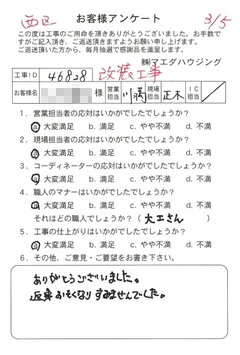 西区 お客様アンケート 3/5
この度は工事のご用命を頂きありがとうございました。お手数で
すがご記入頂き、ご返送頂きますようお願い申し上げます。
ご返送頂いた方から、毎月抽選で感謝品を進呈します。
㈱マエダハウジング
工事ID 46858 改装工事
お客様名 様 営業担当 現場担当 正木 IC担当
1. 営業担当者の応対はいかがでしたでしょうか?
ⓐ大変満足 b. 満足 c. やや不満 d. 不満
2. 現場担当者の応対はいかがでしたでしょうか?
ⓐ大変満足 b. 満足 c. やや不満 d. 不満
3. コーディネーターの応対はいかがでしたでしょうか?
ⓐ大変満足 b. 満足 c. やや不満 d. 不満
4. 職人のマナーはいかがでしたでしょうか?
ⓐ大変満足 b. 満足 c. やや不満 d. 不満
それはどの職人でしょうか?(大工さん)
5. 工事の仕上がりはいかがでしたでしょうか?
ⓐ大変満足 b. 満足 c. やや不満 d. 不満
6. その他、ご意見・ご要望をお書き下さい。
ありがとうございました。
返事おそくなりすみませんでした。